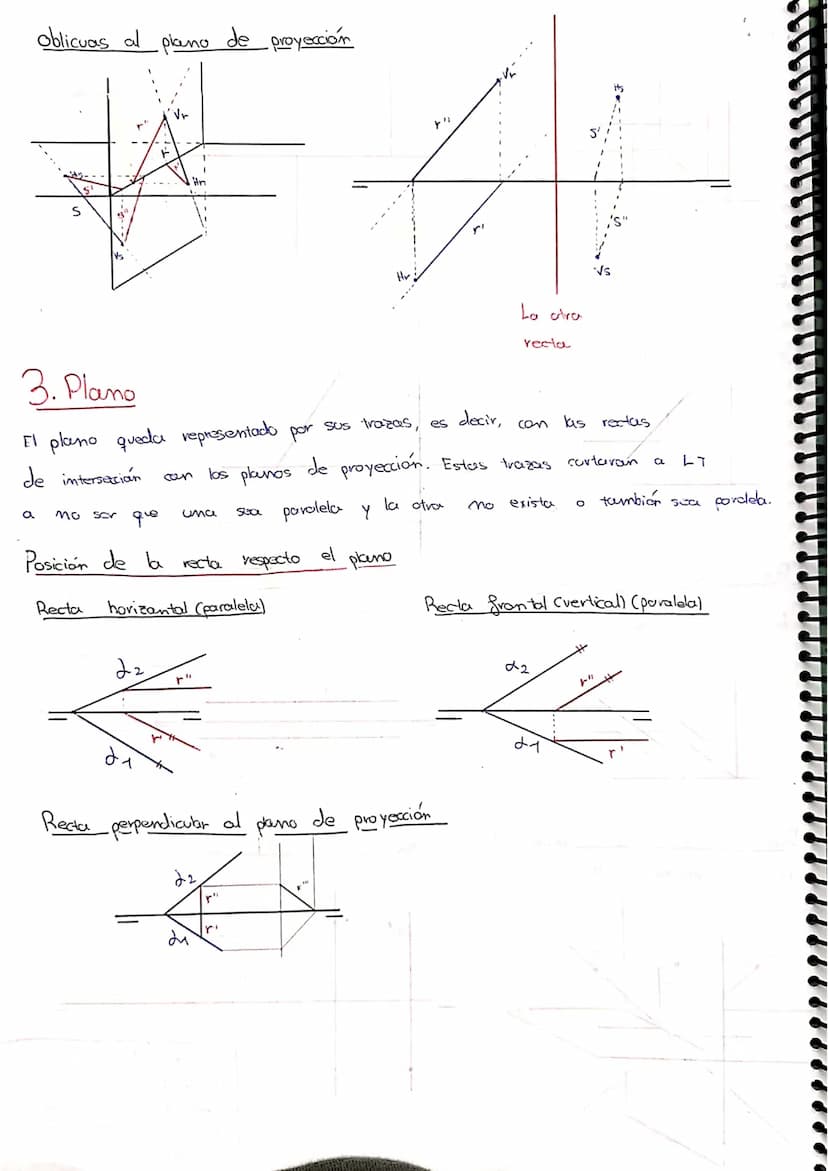 Oblicuas al plano de proyección
Vr
r"
r
Hr
Hs
s'
s
s"
Vs
Vr
r"
r'
Hr
Hs
s'
s"
Vs
La otra
recta
3. Plano
El plano queda representado por sus trazas, es decir, con las rectas
de interseción con los planos de proyección. Estas trazas cortaran a LT
a no ser que una sea paralela y la otra no exista o tambión sea paralela.
Posición de la recta respecto el plano
Recta horizontal (paralela)
Recta frontal (vertical) (paralela)
α2
r"
r'
α1
α2
r"
α1
r'
Recta perpendicular al plano de proyección
α2
r"
r'
α1
r'''